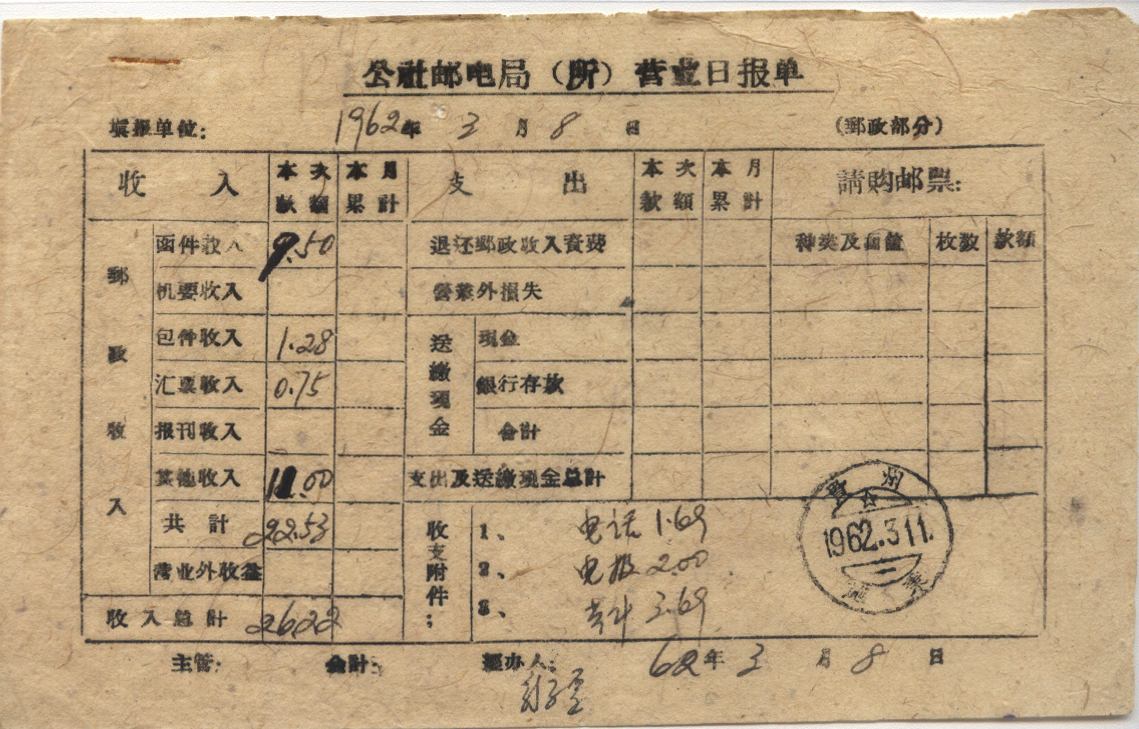 公社邮电局（所）营业日报单
填报单位: 1962年 3 月 8 日 (郵政部分)
收 入 本次款额 本月累計 支 出 本次款額 本月累計 請购邮票:
郵政收入 函件收入 9.50 退还郵政收入資费 种类及面值 枚数 款額
机要收入 营業外損失
包件收入 1.28 送繳現金 現金
汇票收入 0.75 銀行存款
报刊收入 合計
其他收入 11.00 支出及送繳現金总計
共計 22.53 收支附件: 1、 电话 1.69
营业外收益 2、 电报 2.00
收入总計 26.22 3、 共计 3.69
貴州
1962.3.11.
主管: 会計: 經办人: 62年 3 月 8 日